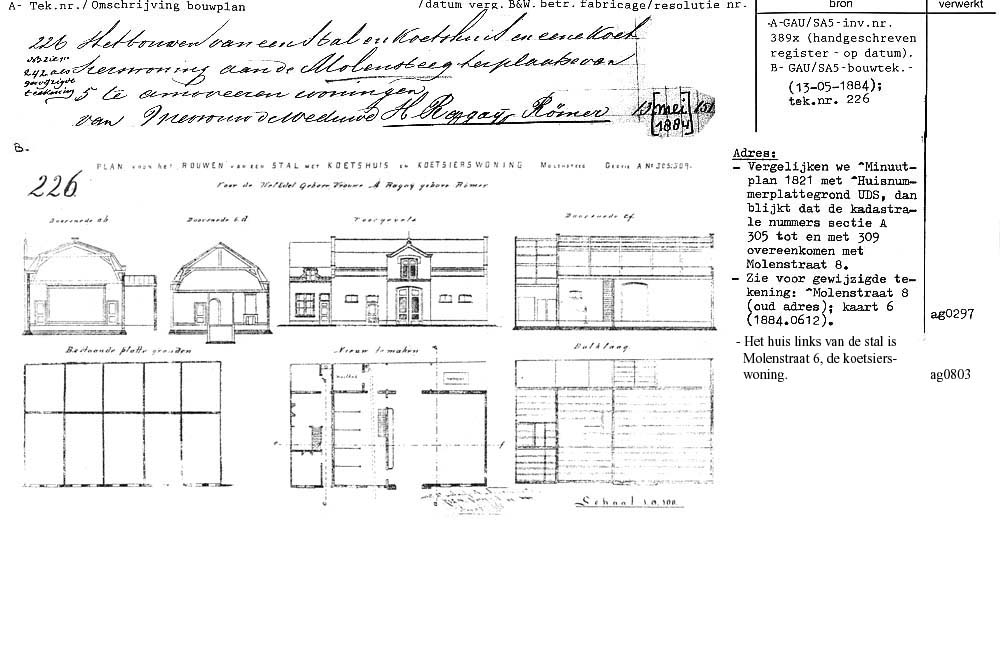 A- Tek.nr./ Omschrijving bouwplan /datum verg. B&W. betr. fabricage/resolutie nr. bron verwerkt
226 Het bouwen van een Stal en Koetshuis en eene Koet
NB zie nr.
242 als
gewijzigde
teekening
sierswoning aan de Molensteeg ter plaatse van
5 te amoveeren woningen
van Mevrouw de Weduwe H Ragay Römer 13 [mei 1884] 151
-A-GAU/SA5-inv.nr.
389x (handgeschreven
register - op datum).
B- GAU/SA5-bouwtek.-
(13-05-1884);
tek.nr. 226
B-
PLAN voor het BOUWEN van een STAL met KOETSHUIS en KOETSIERSWONING Molensteeg Sectie A No 305:309.
226.
Voor de Weledel Geboren Vrouwe A Ragay geboren Römer
Doorsnede a b
Doorsnede c d
Voorgevels
Doorsnede e f
Bestaande platte gronden
Nieuw te maken
Balklaag
Schaal 1 à 100
Adres:
- Vergelijken we ^Minuut-
plan 1821 met ^Huisnum-
merplattegrond UDS, dan
blijkt dat de kadastra-
le nummers sectie A
305 tot en met 309
overeenkomen met
Molenstraat 8.
- Zie voor gewijzigde te-
kening: ^Molenstraat 8
(oud adres); kaart 6
(1884.0612).
ag0297
- Het huis links van de stal is
Molenstraat 6, de koetsiers-
woning.
ag0803